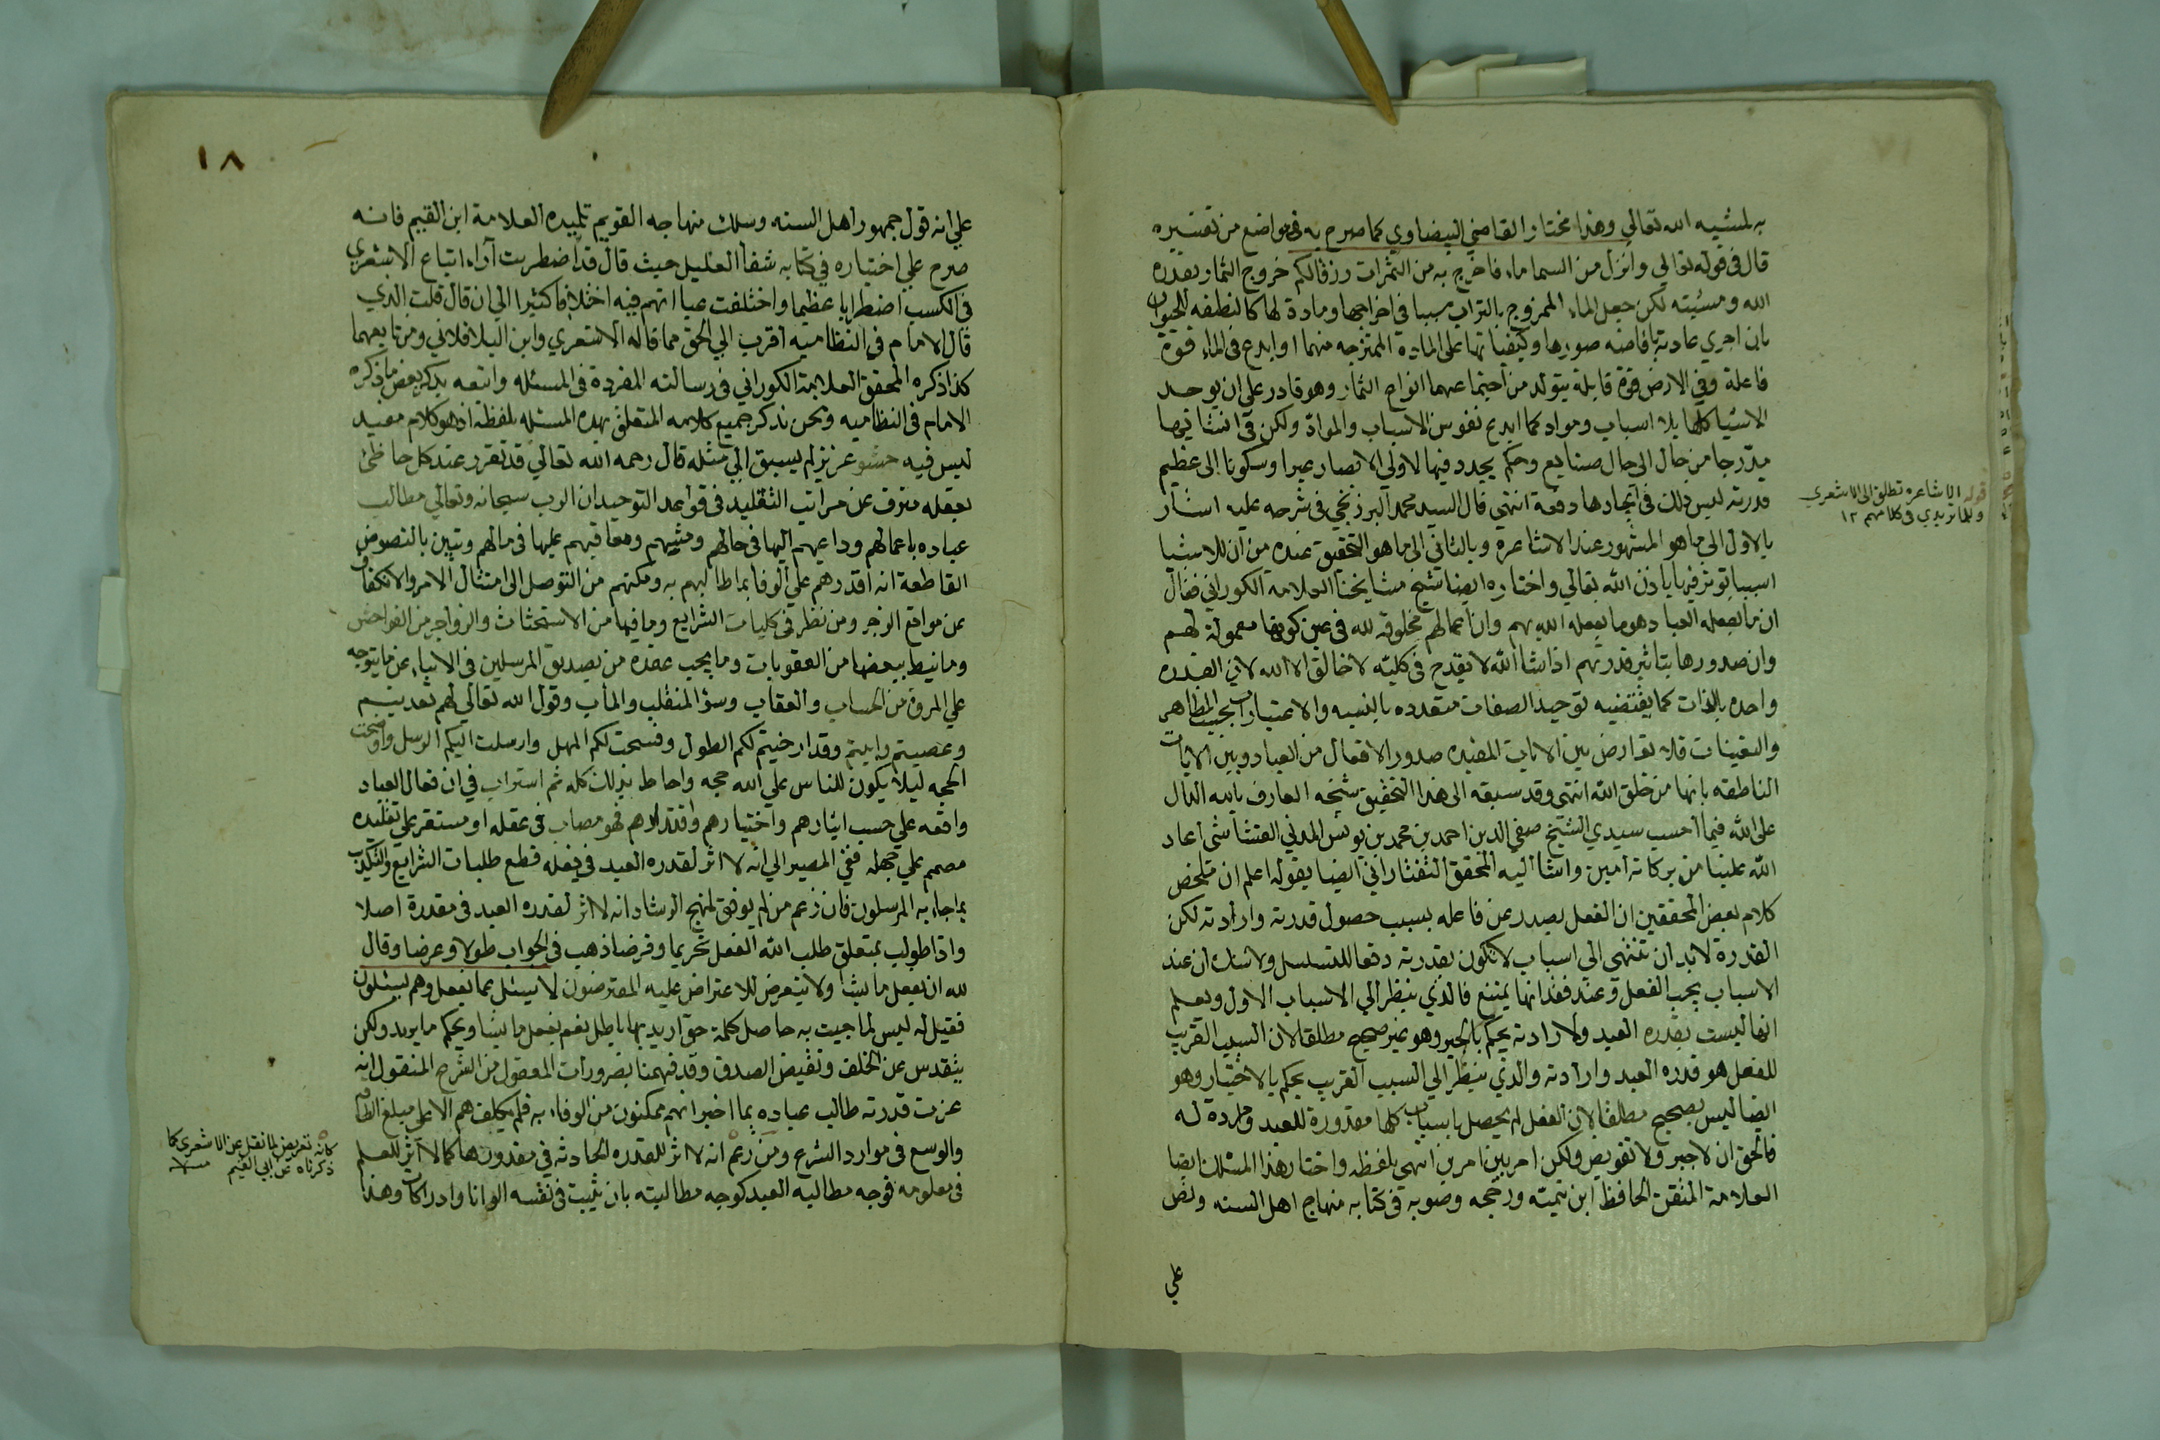 به لمشيه الله تعالي وهذا مختار القاضي البيضاوي كما صرح به في مواضع من تفسيره
قال في قوله تعالي وانزل من السما ماء فاخرج به من الثمرات رزقا لكم خروج الثمار بقدرة
الله ومشيته لكن جعل الماء الممزوج بالتراب سببا في اخراجها ومادة لها كالنطفه للحيوان
بان اجري عادته بافاضه صورها وكيفياتها على المادة الممتزجه منهما او ابدع في الماء قوة
فاعلة وفي الارض قوة قابلة يتولد من اجتماعهما انواع الثمار وهو قادر علي ان يوجد
الاشيا كلها بلا اسباب ومواد كما ابدع نفوس الاسباب والمواد ولكن في انشائها
مدرجا من حال الى حال صنايع وحكم يجدد فيها لاولي الابصار عبرا وسكونا الى عظيم
قدرته ليس ذلك في ايجادها دفعة انتهي قال السيد محمد البرزنجي في شرحه عليه اشار
بالاول الي ما هو المشهور عند الاشاعرة وبالثاني الى ما هو التحقيق عنده من ان للاشيا
اسبابا توثر فيها باذن الله تعالي واختاره ايضا شيخ مشايخنا العلامه الكوراني فقال
ان ما يفعله العباد هو ما يفعله الله بهم وان اعمالهم مخلوقه لله في عين كونها معمولة لهم
وان صدورها بتاثير قدرتهم اذا شا الله لا يقدح في كليه لا خالق الا الله لان القدره
واحده بالذات كما يقتضيه توحيد الصفات متعدده بالنسبه والاعتبارات بحسب المظاهر
والتعينات فلا تعارض بين الايات المفيده صدور الافعال من العباد وبين الايات
الناطقه بانها من خلق الله انتهي وقد سبقه الى هذا التحقيق شيخه العارف بالله الدال
على الله فيما احسب سيدي الشيخ صفي الدين احمد بن محمد بن يونس المدني القشاشي اعاد
الله علينا من بركاته امين واشا اليه المحقق التفتازاني ايضا بقوله اعلم ان ملخص
كلام بعض المحققين ان الفعل يصدر عن فاعله بسبب حصول قدرته وارادته لكن
القدرة لا بد ان تنتهي الي اسباب لا تكون بقدرته دفعا للتسلسل ولا شك ان عند
الاسباب يجب الفعل وعند فقدانها يمتنع فالذي ينظر الي الاسباب الاول ويعلم
انها ليست بقدره العبد ولا ارادته يحكم بالجبر وهو غير صحيح مطلقا لان السبب القريب
للفعل هو قدره العبد وارادته والذي ينظر الي السبب القريب يحكم بالاختيار وهو
ايضا ليس بصحيح مطلقا لان الفعل لم يحصل باسباب كلها مقدورة للعبد ومراده له
فالحق ان لا جبر ولا تفويض ولكن امر بين امرين انتهي بلفظه واختار هذا المسلك ايضا
العلامة المتقن الحافظ ابن تيميه ورجحه وصوبه في كتابه منهاج اهل السنه ونص
علي
قوله الاشاعره تطلق الى الاشعري
والماتريدي في كلامهم ١٢
١٨
علي انه قول جمهور اهل السنه وسلك منهاجه القويم تلميده العلامة ابن القيم فانه
صرح علي اختياره في كتابه شفا العليل حيث قال قد اضطربت آراء اتباع الاشعري
في الكسب اضطرابا عظيما واختلفت عباراتهم فيه اختلافا كثيرا الي ان قال قلت الذي
قال الامام في النظاميه اقرب الي الحق مما قاله الاشعري وابن الباقلاني ومن تابعهما
كذا ذكره المحقق العلامة الكوراني في رسالته المفردة في المسئله واتبعه بذكر بعض ما ذكره
الامام في النظاميه ونحن نذكر جميع كلامه المتعلق بهذه المسئله بلفظه اذ هو كلام مفيد
ليس فيه حشو عزيز لم يسبق الي مثله قال رحمه الله تعالي قد تقرر عند كل حاظئ
بعقله مترق عن مراتب التقليد في قواعد التوحيد ان الرب سبحانه وتعالي مطالب
عباده باعمالهم وداعيهم اليها في حالهم ومثيبهم ومعاقبهم عليها في مالهم وتبين بالنصوص
القاطعة انه اقدرهم علي الوفا بما طالبهم به ومكنهم من التوصل الى امتثال الامر والانكفاف
عن مواقع الزجر ومن نظر في كليات الشرايع وما فيها من الاستحثاث والزواجر من الفواحش
وما نيط ببعضها من العقوبات وما يجب عقده من تصديق المرسلين في الانباء عن ما يتوجه
علي المرقة من الحساب والعقاب وسؤ المنقلب والماب وقول الله تعالي لهم تعديتم
وعصيتم وابيتم وقد ارخيتم لكم الطول وفسحت لكم المهل وارسلت اليكم الرسل واوضحت
الحجه ليلا يكون للناس علي الله حجه واحاط بذلك كله ثم استراب في ان فعال العباد
واقعه علي حسب ايثارهم واختيارهم واقتدارهم فهو مصاب في عقله او مستقر علي تقليده
مصمم علي جهله ففي المصير الي انه لا اثر لقدره العبد في فعله قطع طلبات الشرايع والتكذيب
بما جاء به المرسلون فان زعم من لم يوفق لمنهج الرشاد انه لا اثر لقدره العبد في مقدرة اصلا
واذا طولب بمتعلق طلب الله الفعل تحريما وفرضا ذهب في الجواب طولا وعرضا وقال
لله ان يفعل ما يشا ولا يتعرض للاعتراض عليه المعترضون لا يسئل عما يفعل وهم يسئلون
فقيل له ليس لما جيت به حاصل كلمة حق اريد بها باطل نعم يفعل ما يشا ويحكم ما يريد ولكن
يتقدس عن الخلف ونقيض الصدق وقد فهمنا بضرورات المعقول من الشرع المنقول انه
عزت قدرته طالب عباده بما اخبر انهم ممكنون من الوفاء به فلم يكلفهم الا على مبلغ الطاقه
والوسع في موارد الشرع ومن زعم انه لا اثر للقدره الحادثه في مقدورها كما لا اثر للعلم
في معلومه فوجه مطالبه العبد كوجه مطالبته بان يثبت في نفسه الوانا وادراكات وهذا
كانه تعريض لما نقل عن الاشعري كما
ذكرناه عن ابي القيم